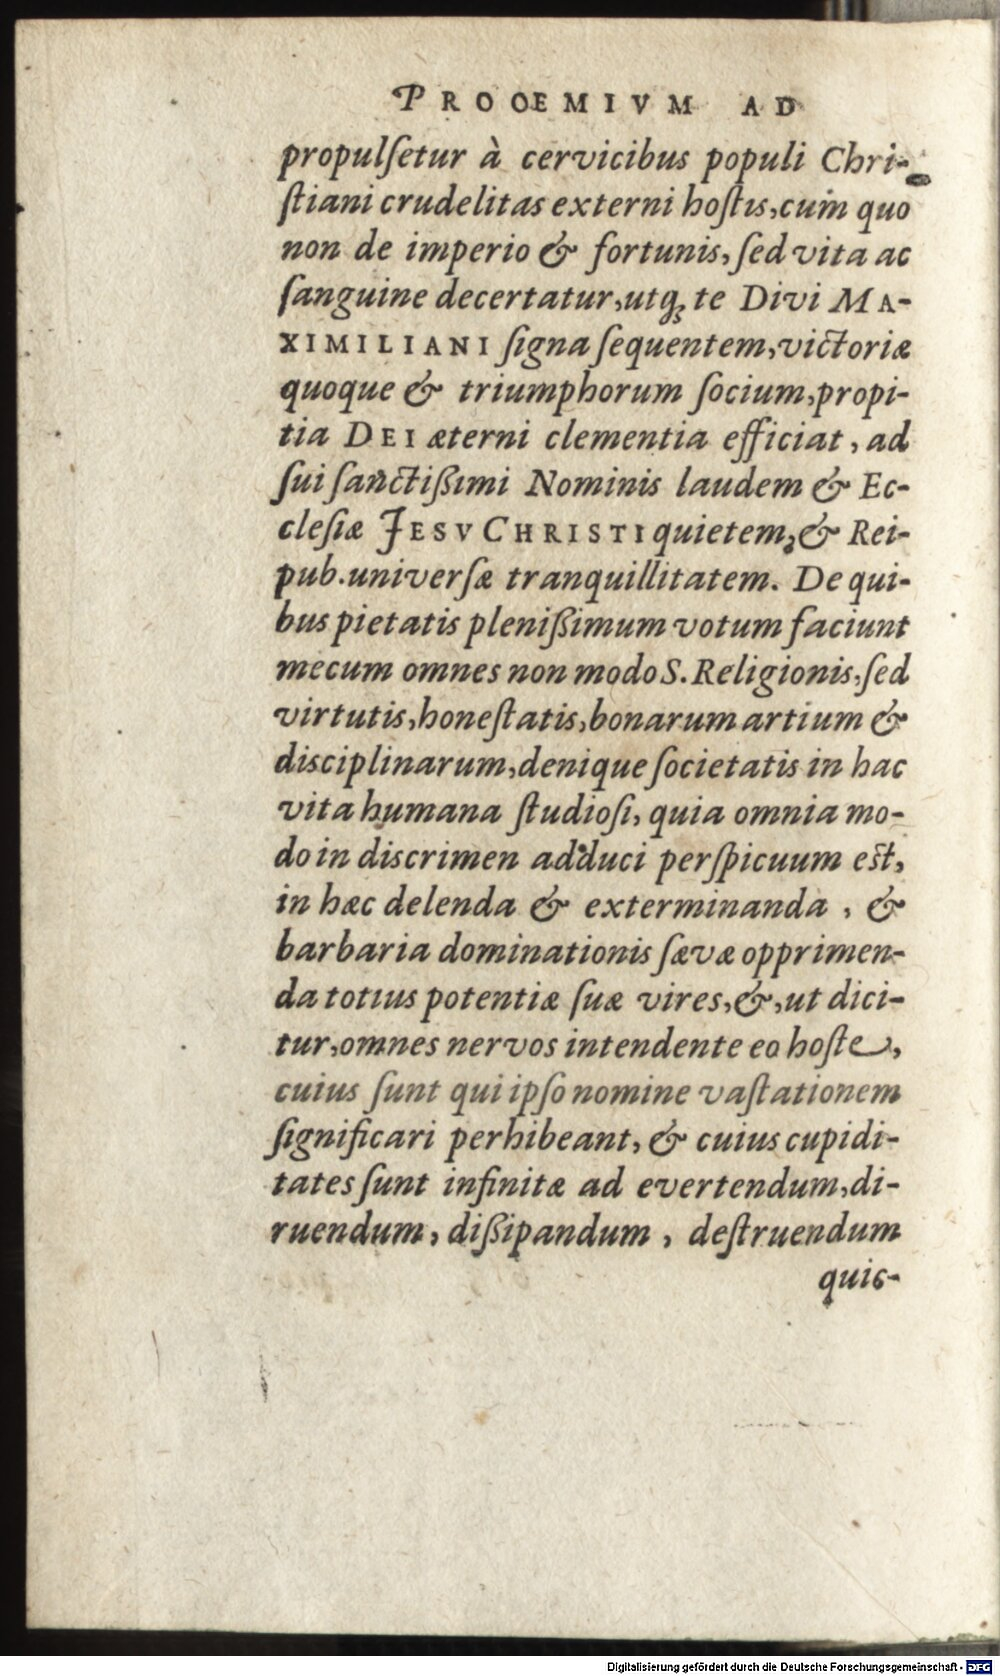 PROOEMIVM AD
propulſetur à cervicibus populi Chri-
ſtiani crudelitas externi hoſtis, cum quo
non de imperio & fortunis, ſed vita ac
ſanguine decertatur, utq́ꝫ te Divi MA-
XIMILIANI ſigna ſequentem, victoriæ
quoque & triumphorum ſocium, propi-
tia DEI æterni clementia efficiat, ad
ſui ſanctißimi Nominis laudem & Ec-
cleſiæ JESV CHRISTI quietem, & Rei-
pub. univerſæ tranquillitatem. De qui-
bus pietatis plenißimum votum faciunt
mecum omnes non modo S. Religionis, ſed
virtutis, honeſtatis, bonarum artium &
disciplinarum, denique ſocietatis in hac
vita humana ſtudioſi, quia omnia mo-
do in discrimen adduci perſpicuum est,
in hæc delenda & exterminanda, &
barbaria dominationis ſævæ opprimen-
da totius potentiæ ſuæ vires, &, ut dici-
tur, omnes nervos intendente eo hoſte,
cuius ſunt qui ipſo nomine vaſtationem
ſignificari perhibeant, & cuius cupidi-
tates ſunt infinitæ ad evertendum, di-
ruendum, dißipandum, deſtruendum
quic-
Digitalisierung gefördert durch die Deutsche Forschungsgemeinschaft - DFG